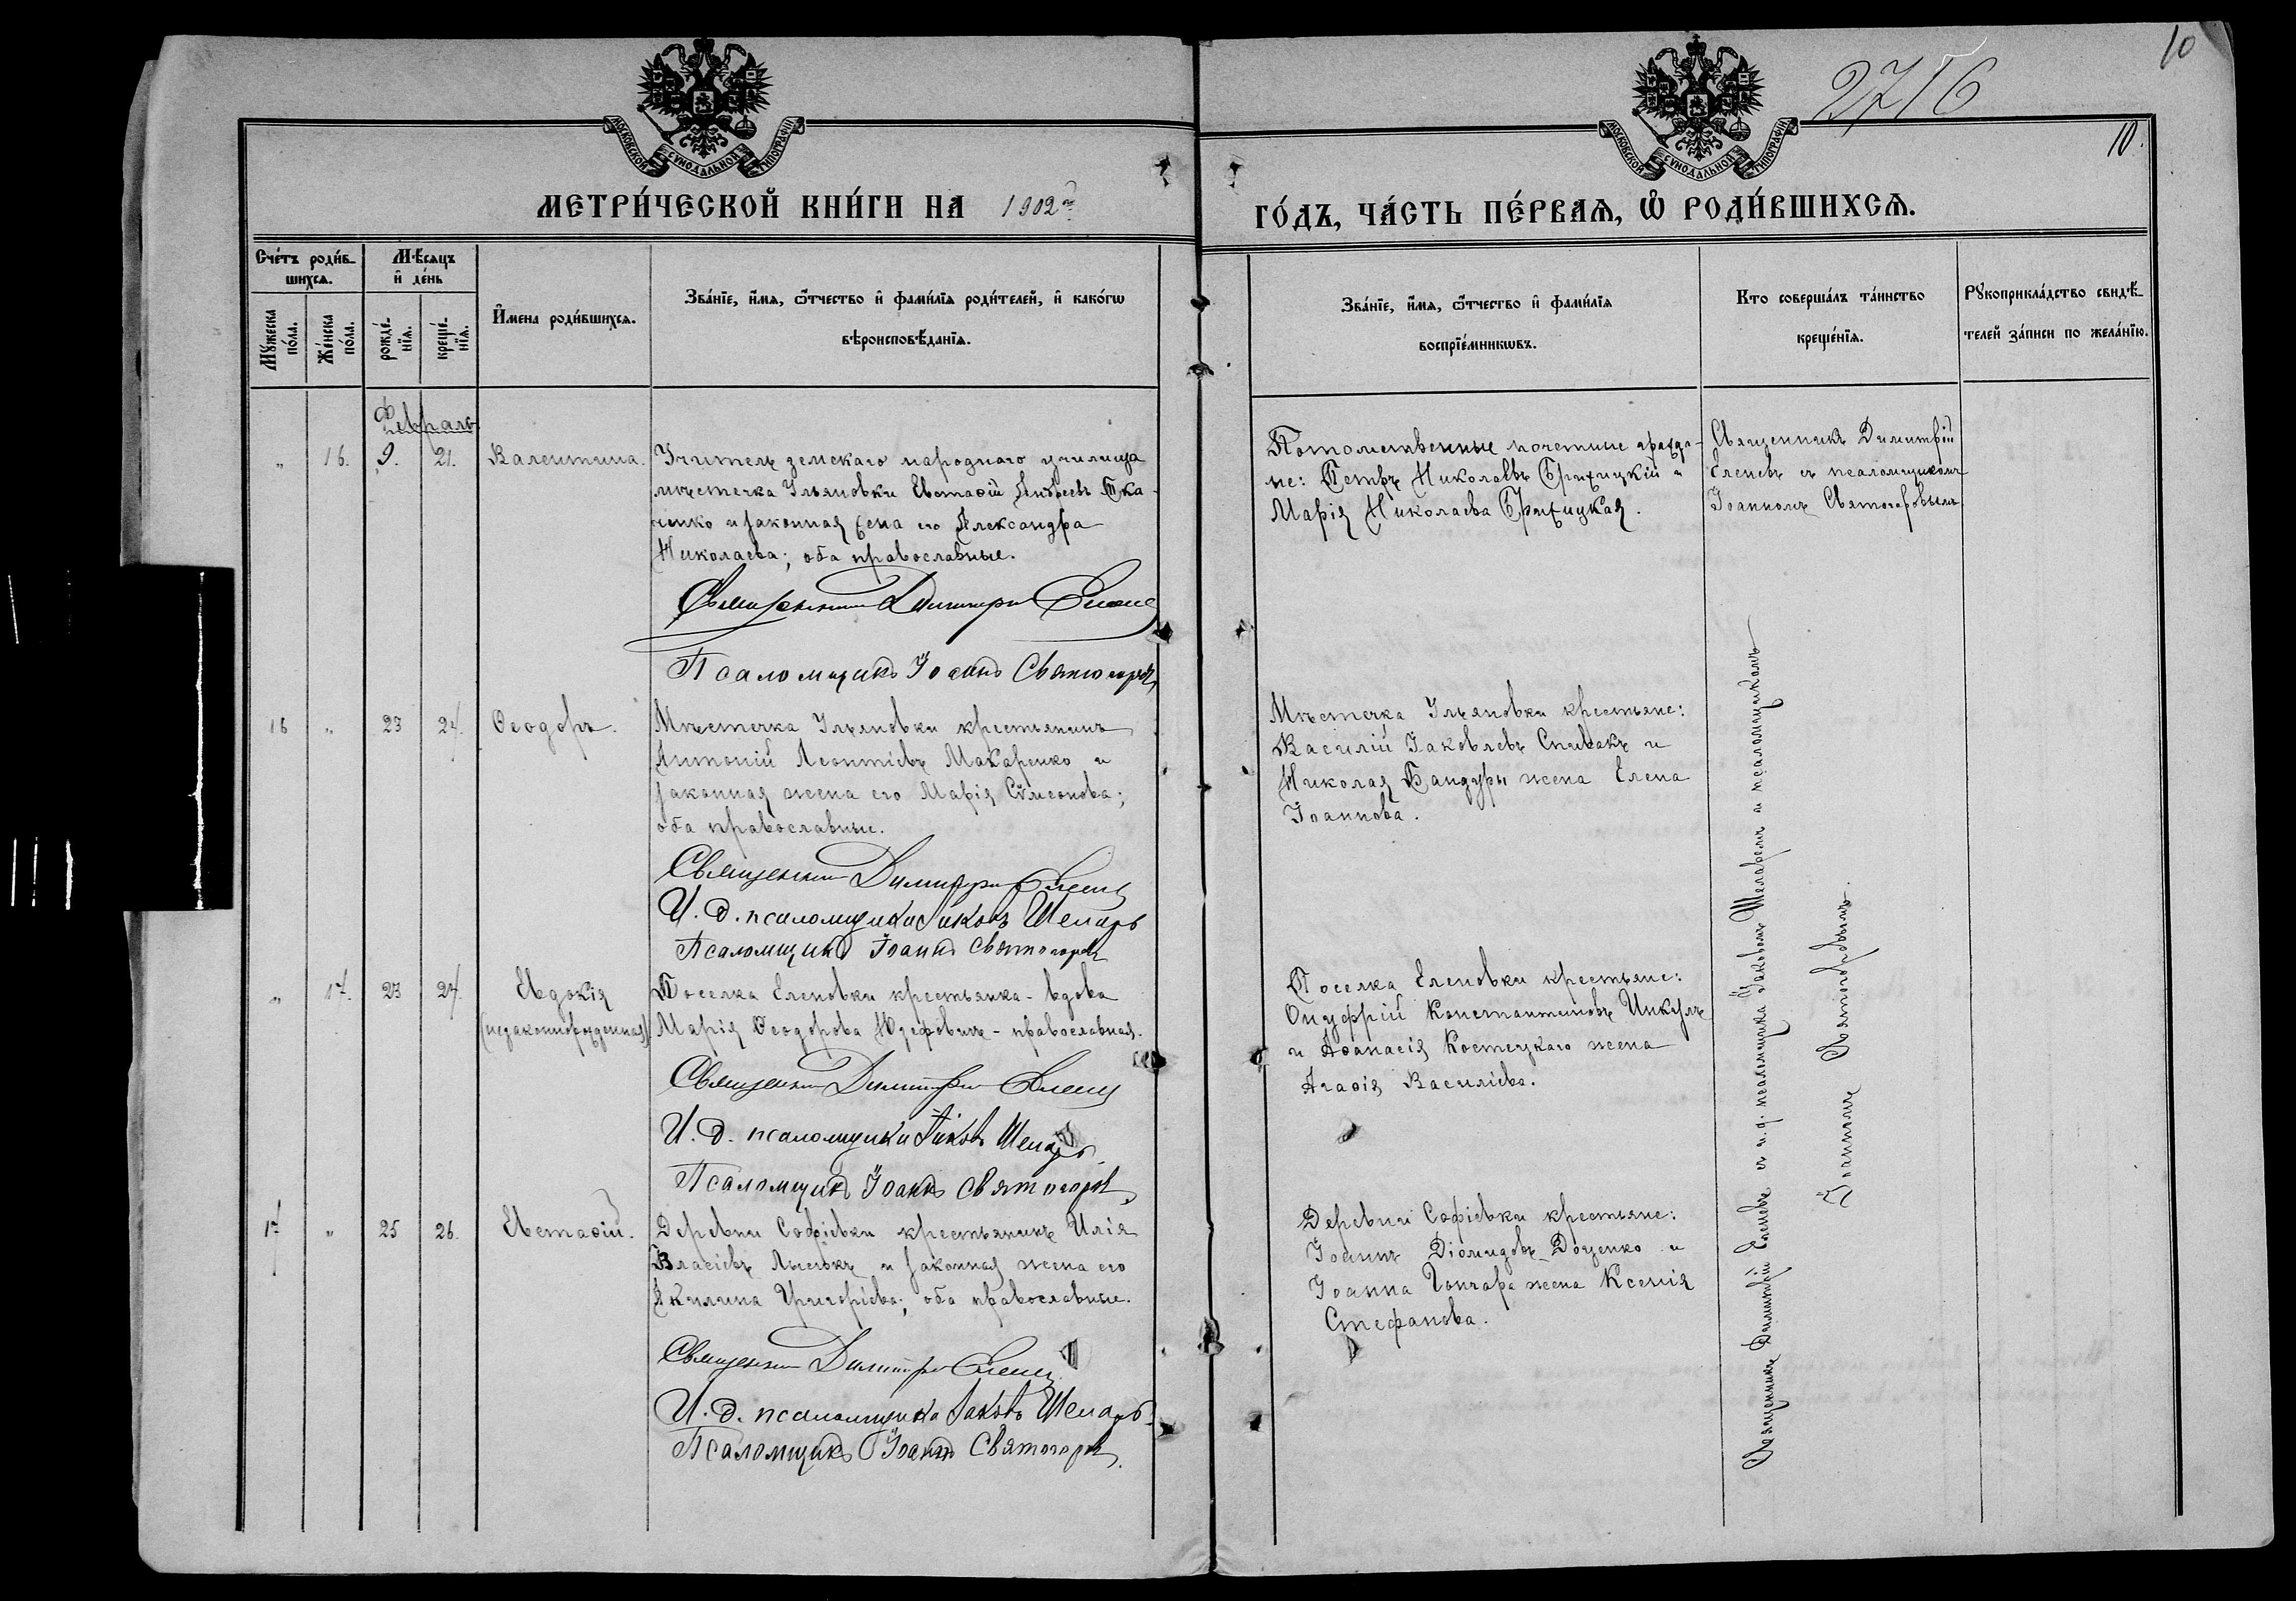 10
2716
10.
МОСКОВСКОЙ СѴНОДАЛЬНОЙ ТИПОГРАФІИ
МОСКОВСКОЙ СѴНОДАЛЬНОЙ ТИПОГРАФІИ
МЕТРИ́ЧЕСКОЙ КНИ́ГИ НА 1902й
ГО́ДЪ, ЧА́СТЬ ПЕ́РВАѦ, Ѽ РОДИ́ВШИХСѦ.
Сче́тъ роди́в-
шихсѧ.
Мѣ́сѧцъ
и҆ де́нь
Мꙋ́жеска
по́ла.
Же́нска
по́ла.
рожде́-
нїѧ.
креще́-
нїѧ.
И҆́мена роди́вшихсѧ.
Зва́нїе, и҆́мѧ, ѻ҆́тчество и҆ фами́лїѧ роди́телей, и҆ како́гѡ
вѣроисповѣ́данїѧ.
Зва́нїе, и҆́мѧ, ѻ҆́тчество и҆ фами́лїѧ
воспрїе́мникѡвъ.
Кто соверша́лъ та́инство
креще́нїѧ.
Рꙋкоприкла́дство свидѣ́-
телей за́писи по жела́нїю.
Февраль
" 16. 9. 21. Валентина.
Учитель земскаго народнаго училища
мѣстечка Ульяновки Евстаѳій Андреевъ Тка-
ченко и законная жена его Александра
Николаева; оба православные.
Священникъ Димитрій Еленевъ
Псаломщикъ Іоаннъ Святогоровъ
Потомственные почетные гражда-
не: Петръ Николаевъ и
Марія Николаева
Священникъ Димитрій
Еленевъ съ псаломщикомъ
Іоанномъ Святогоровымъ
16 " 23 24. Ѳеодоръ.
Мѣстечка Ульяновки крестьянинъ
Антоній Леонтіевъ Макаренко и
законная жена его Марія Сѵмеонова;
оба православные.
Священникъ Димитрій Еленевъ
И. д. псаломщика Іаковъ Шеларь
Псаломщикъ Іоаннъ Святогоровъ
Мѣстечка Ульяновки крестьяне:
Василій Іаковлевъ Спивакъ и
Николая Бандуры жена Елена
Іоаннова.
" 17. 23 24. Евдокія
(незаконнорожденная)
Поселка Еленовки крестьянка-вдова
Марія Ѳеодорова Юзефовичъ - православная.
Священникъ Димитрій Еленевъ
И. д. псаломщика Іаковъ Шеларь
Псаломщикъ Іоаннъ Святогоровъ
Поселка Еленовки крестьяне:
Онуфрій Константиновъ Цикулъ
и Аѳанасія Костецкаго жена
Агаѳія Василіева.
17 " 25 26. Евстаѳій.
Деревни Софіевки крестьянинъ Илія
Власіевъ Лысякъ и законная жена его
Акилина Григоріева; оба православные.
Священникъ Димитрій Еленевъ
И. д. псаломщика Іаковъ Шеларь
Псаломщикъ Іоаннъ Святогоровъ
Деревни Софіевки крестьяне:
Іоаннъ Діомидовъ Доценко и
Іоанна Гончара жена Ксенія
Стефанова.
Священникъ Димитрій Еленевъ съ и.д. псаломщика Іаковомъ Шеларемъ и псаломщикомъ
Іоанномъ Святогоровымъ.